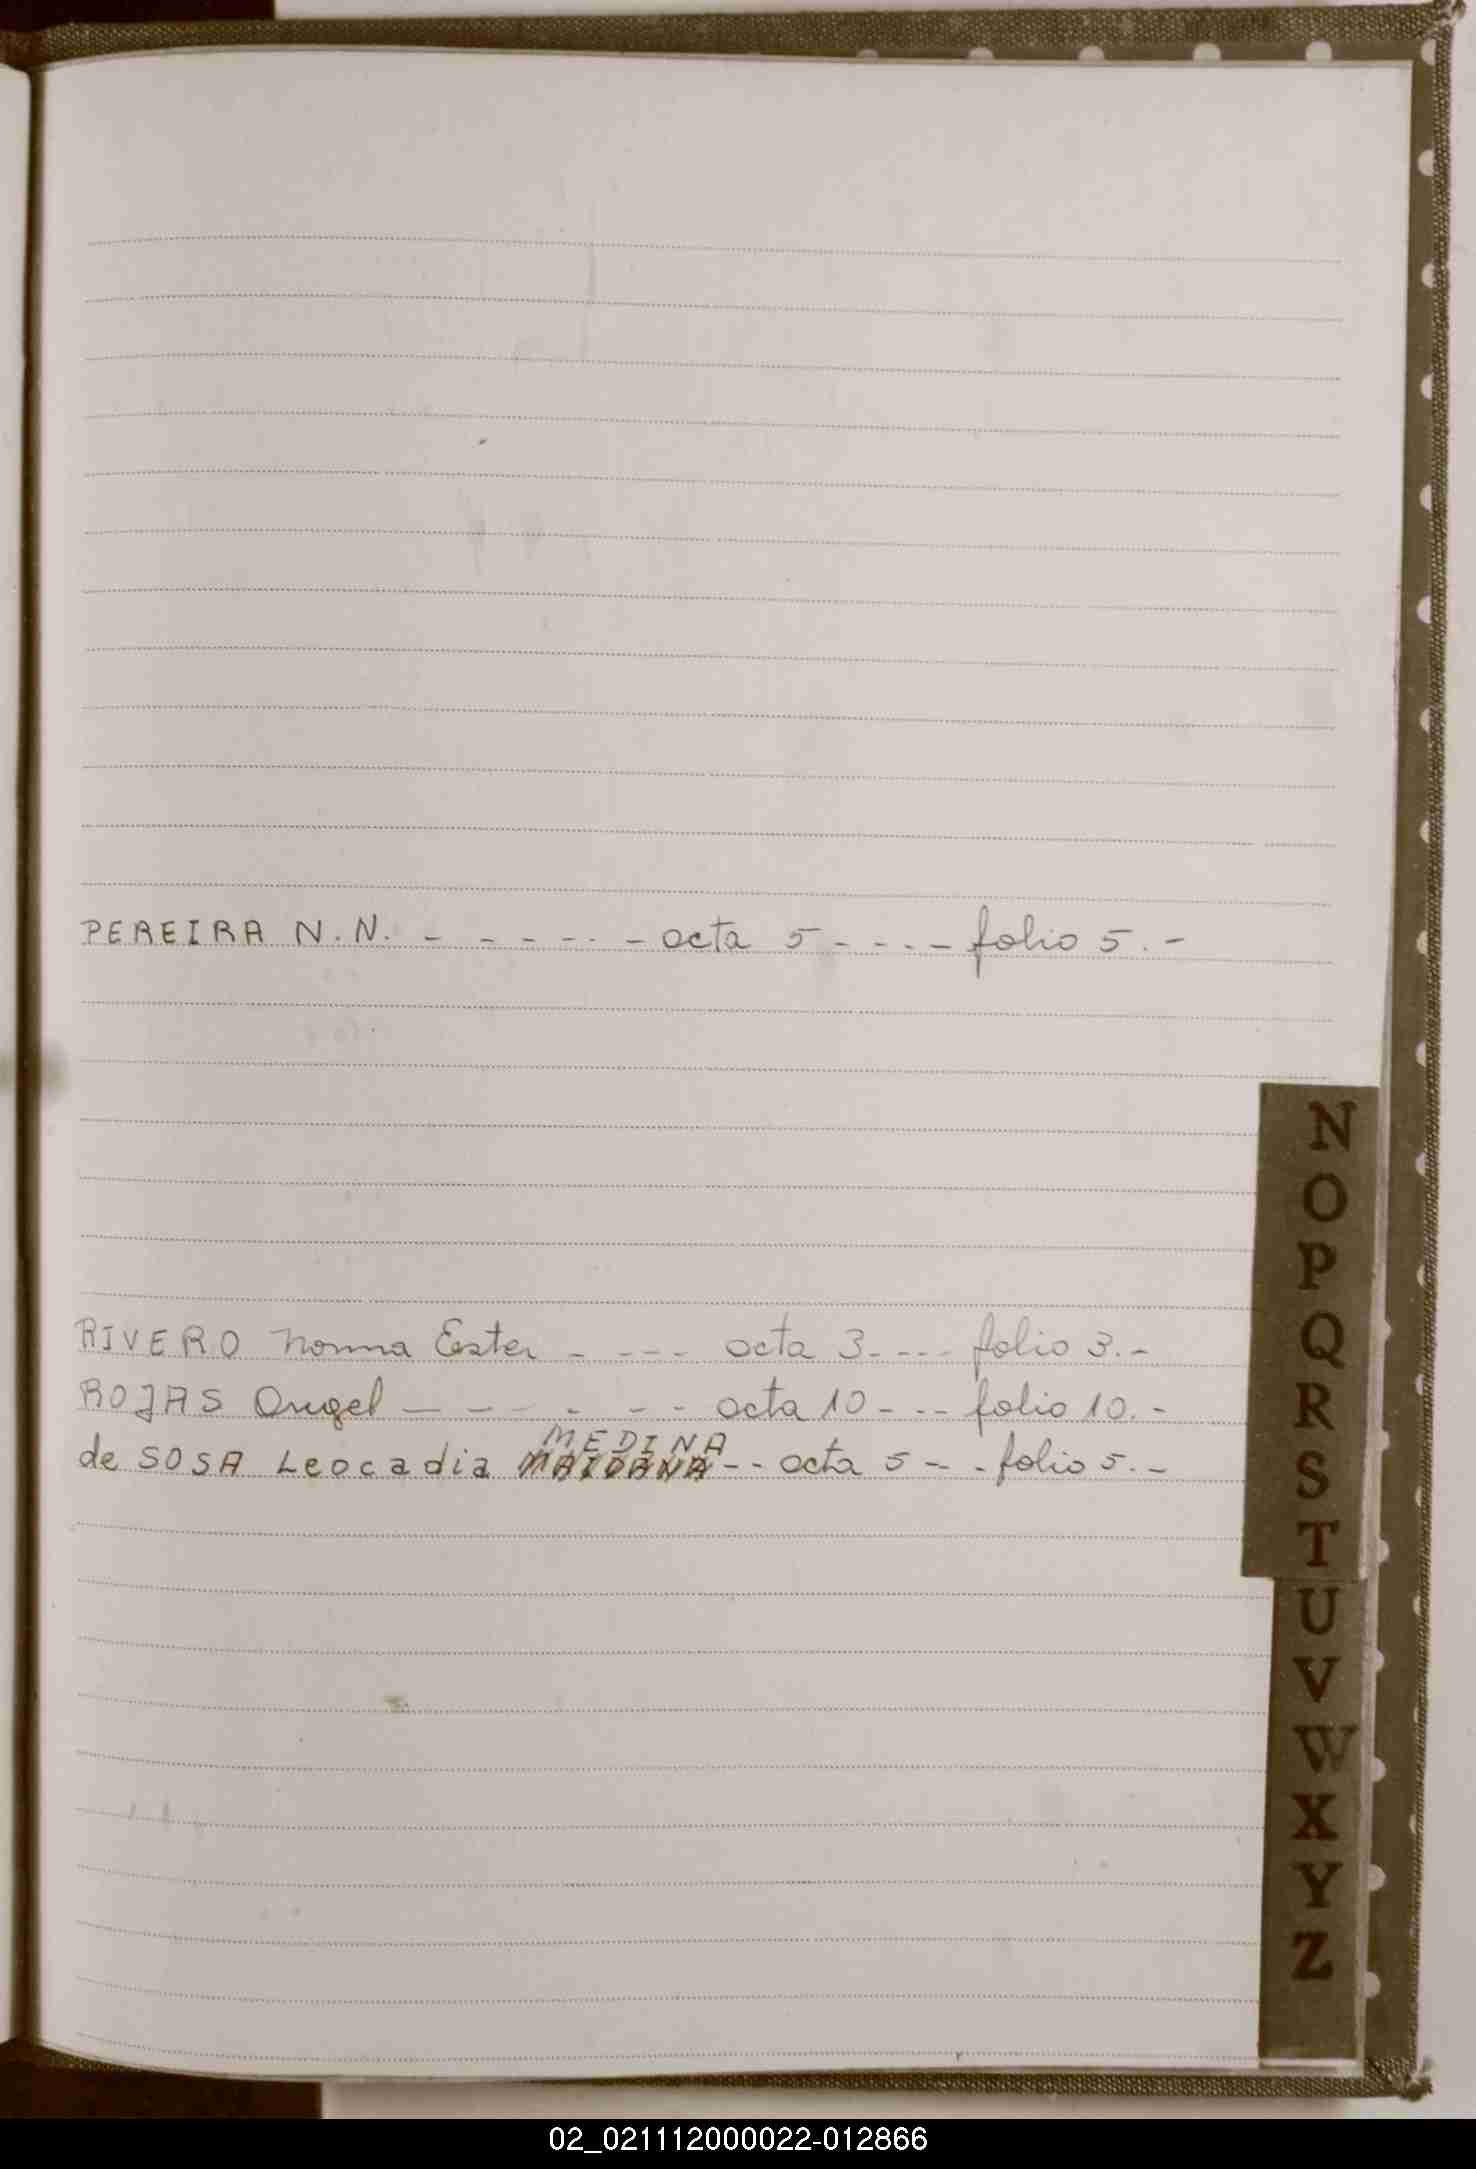 PEREIRA N.N. - - - - - - acta 5 - - - - folio 5.-
N
O
P
Q
RIVERO Norma Ester - - - - - acta 3 - - - - folio 3.-
ROJAS Angel - - - - - - - acta 10 - - - folio 10.-
MEDINA
de SOSA Leocadia MAIDANA - - acta 5 - - - folio 5.-
R
S
T
U
V
W
X
Y
Z
02_021112000022-012866